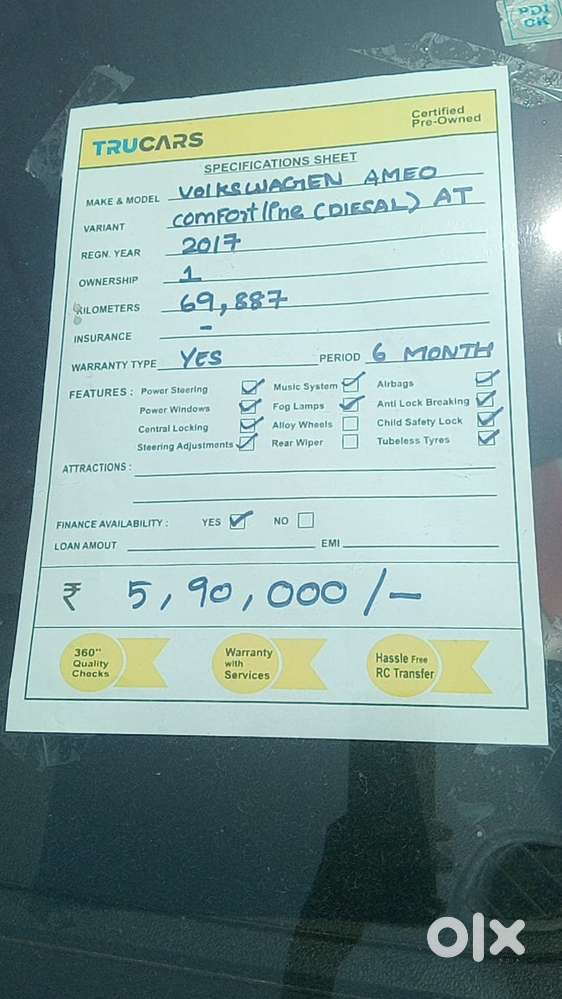 PDI
OK
TRUCARS
Certified
Pre-Owned
SPECIFICATIONS SHEET
MAKE & MODEL VolksWAGIEN AMEO
VARIANT comfortline (DIESAL) AT
REGN. YEAR 2017
OWNERSHIP 1
KILOMETERS 69,887
INSURANCE -
WARRANTY TYPE YES PERIOD 6 MONTH
FEATURES : Power Steering Music System Airbags
Power Windows Fog Lamps Anti Lock Breaking
Central Locking Alloy Wheels Child Safety Lock
Steering Adjustments Rear Wiper Tubeless Tyres
ATTRACTIONS :
FINANCE AVAILABILITY : YES NO
LOAN AMOUT EMI
₹ 5,90,000/-
360°
Quality
Checks
Warranty
with
Services
Hassle Free
RC Transfer
olx